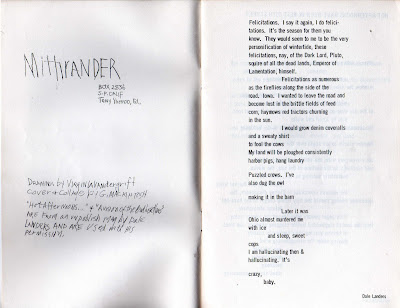 MithrANDER
BOX 2536
S.F. CALIF
Tony Vaughan, Ed.
Drawings by
Cover +
"Hot Afternoons..." +
ARE From an unpublish
LANDERS AND ARE USED with his
permission.
Felicitations. I say it again, I do felici-
tations. It's the season for them you
know. They would seem to me to be the very
personification of wintertide, these
felicitations, nay, of the Dark Lord, Pluto,
squire of all the dead lands, Emperor of
Lamentation, himself.
Felicitations as numerous
as the fireflies along the side of the
road. Iowa. I wanted to leave the road and
become lost in the brittle fields of feed
corn, haymows red tractors churning
in the sun.
I would grow denim coveralls
and a sweaty shirt
to fool the cows
My land will be ploughed consistently
harbor pigs, hang laundry
Puzzled crows. I've
also dug the owl
making it in the barn
Later it was
Ohio almost murdered me
with ice
and sleep, sweet
cops
I am hallucinating then &
hallucinating. It's
crazy,
baby.
Dale Landers